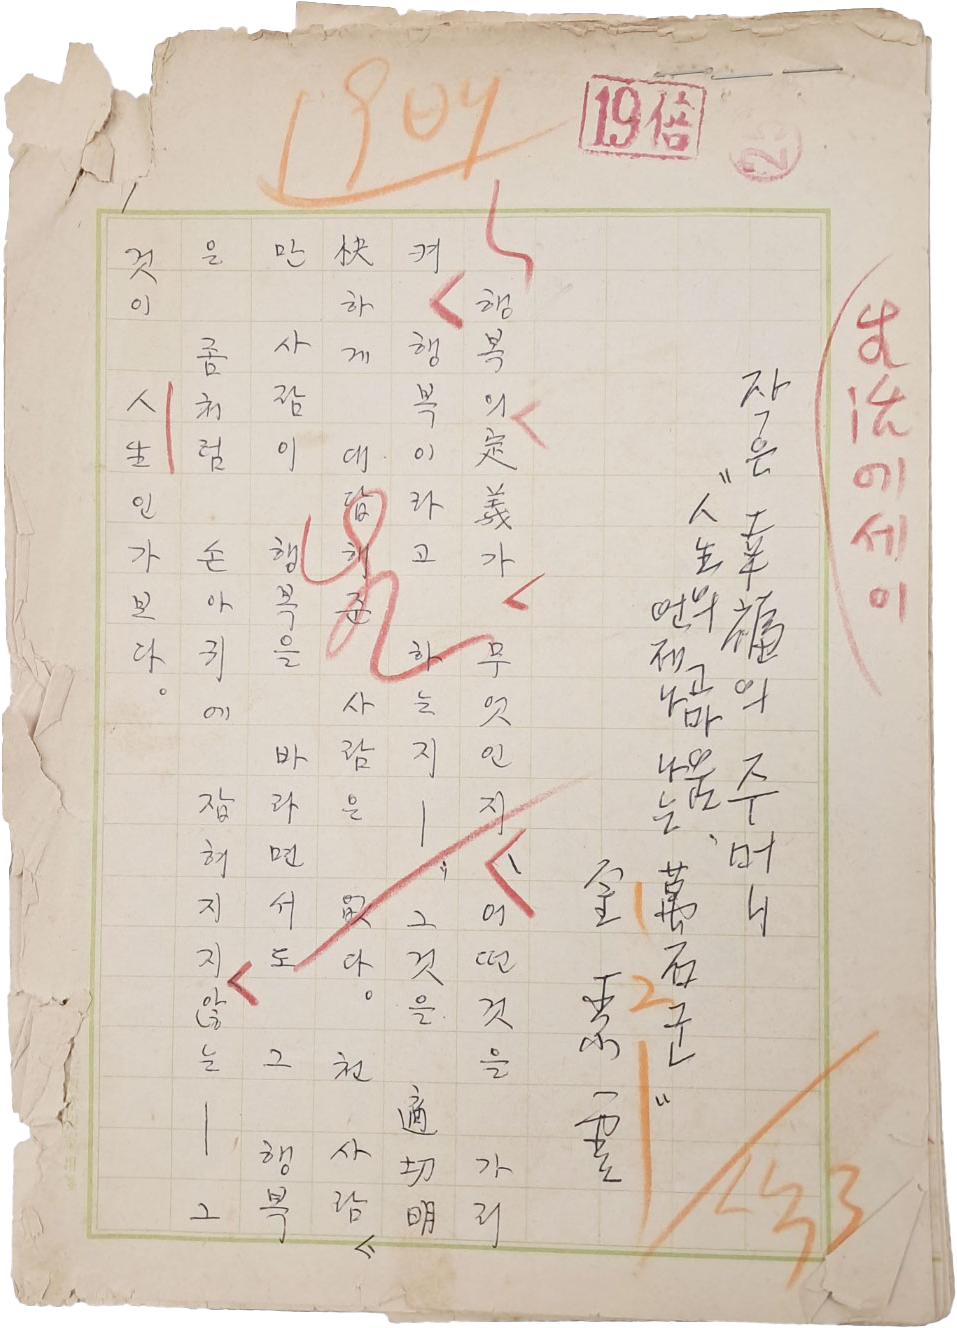 19倍
生活에세이
작은 幸福의 주머니
"人生의 고마움、
언제나 나는 萬石군"
행복의 定義가 무엇인지、 어떤것을 가리
켜 행복이라고 하는지— 그것을 適切明
快하게 대답해준 사람은 없다。 천 사람
만 사람이 행복을 바라면서도 그 행복
은 좀처럼 손아귀에 잡혀지지않는— 그
것이 人生인가보다。